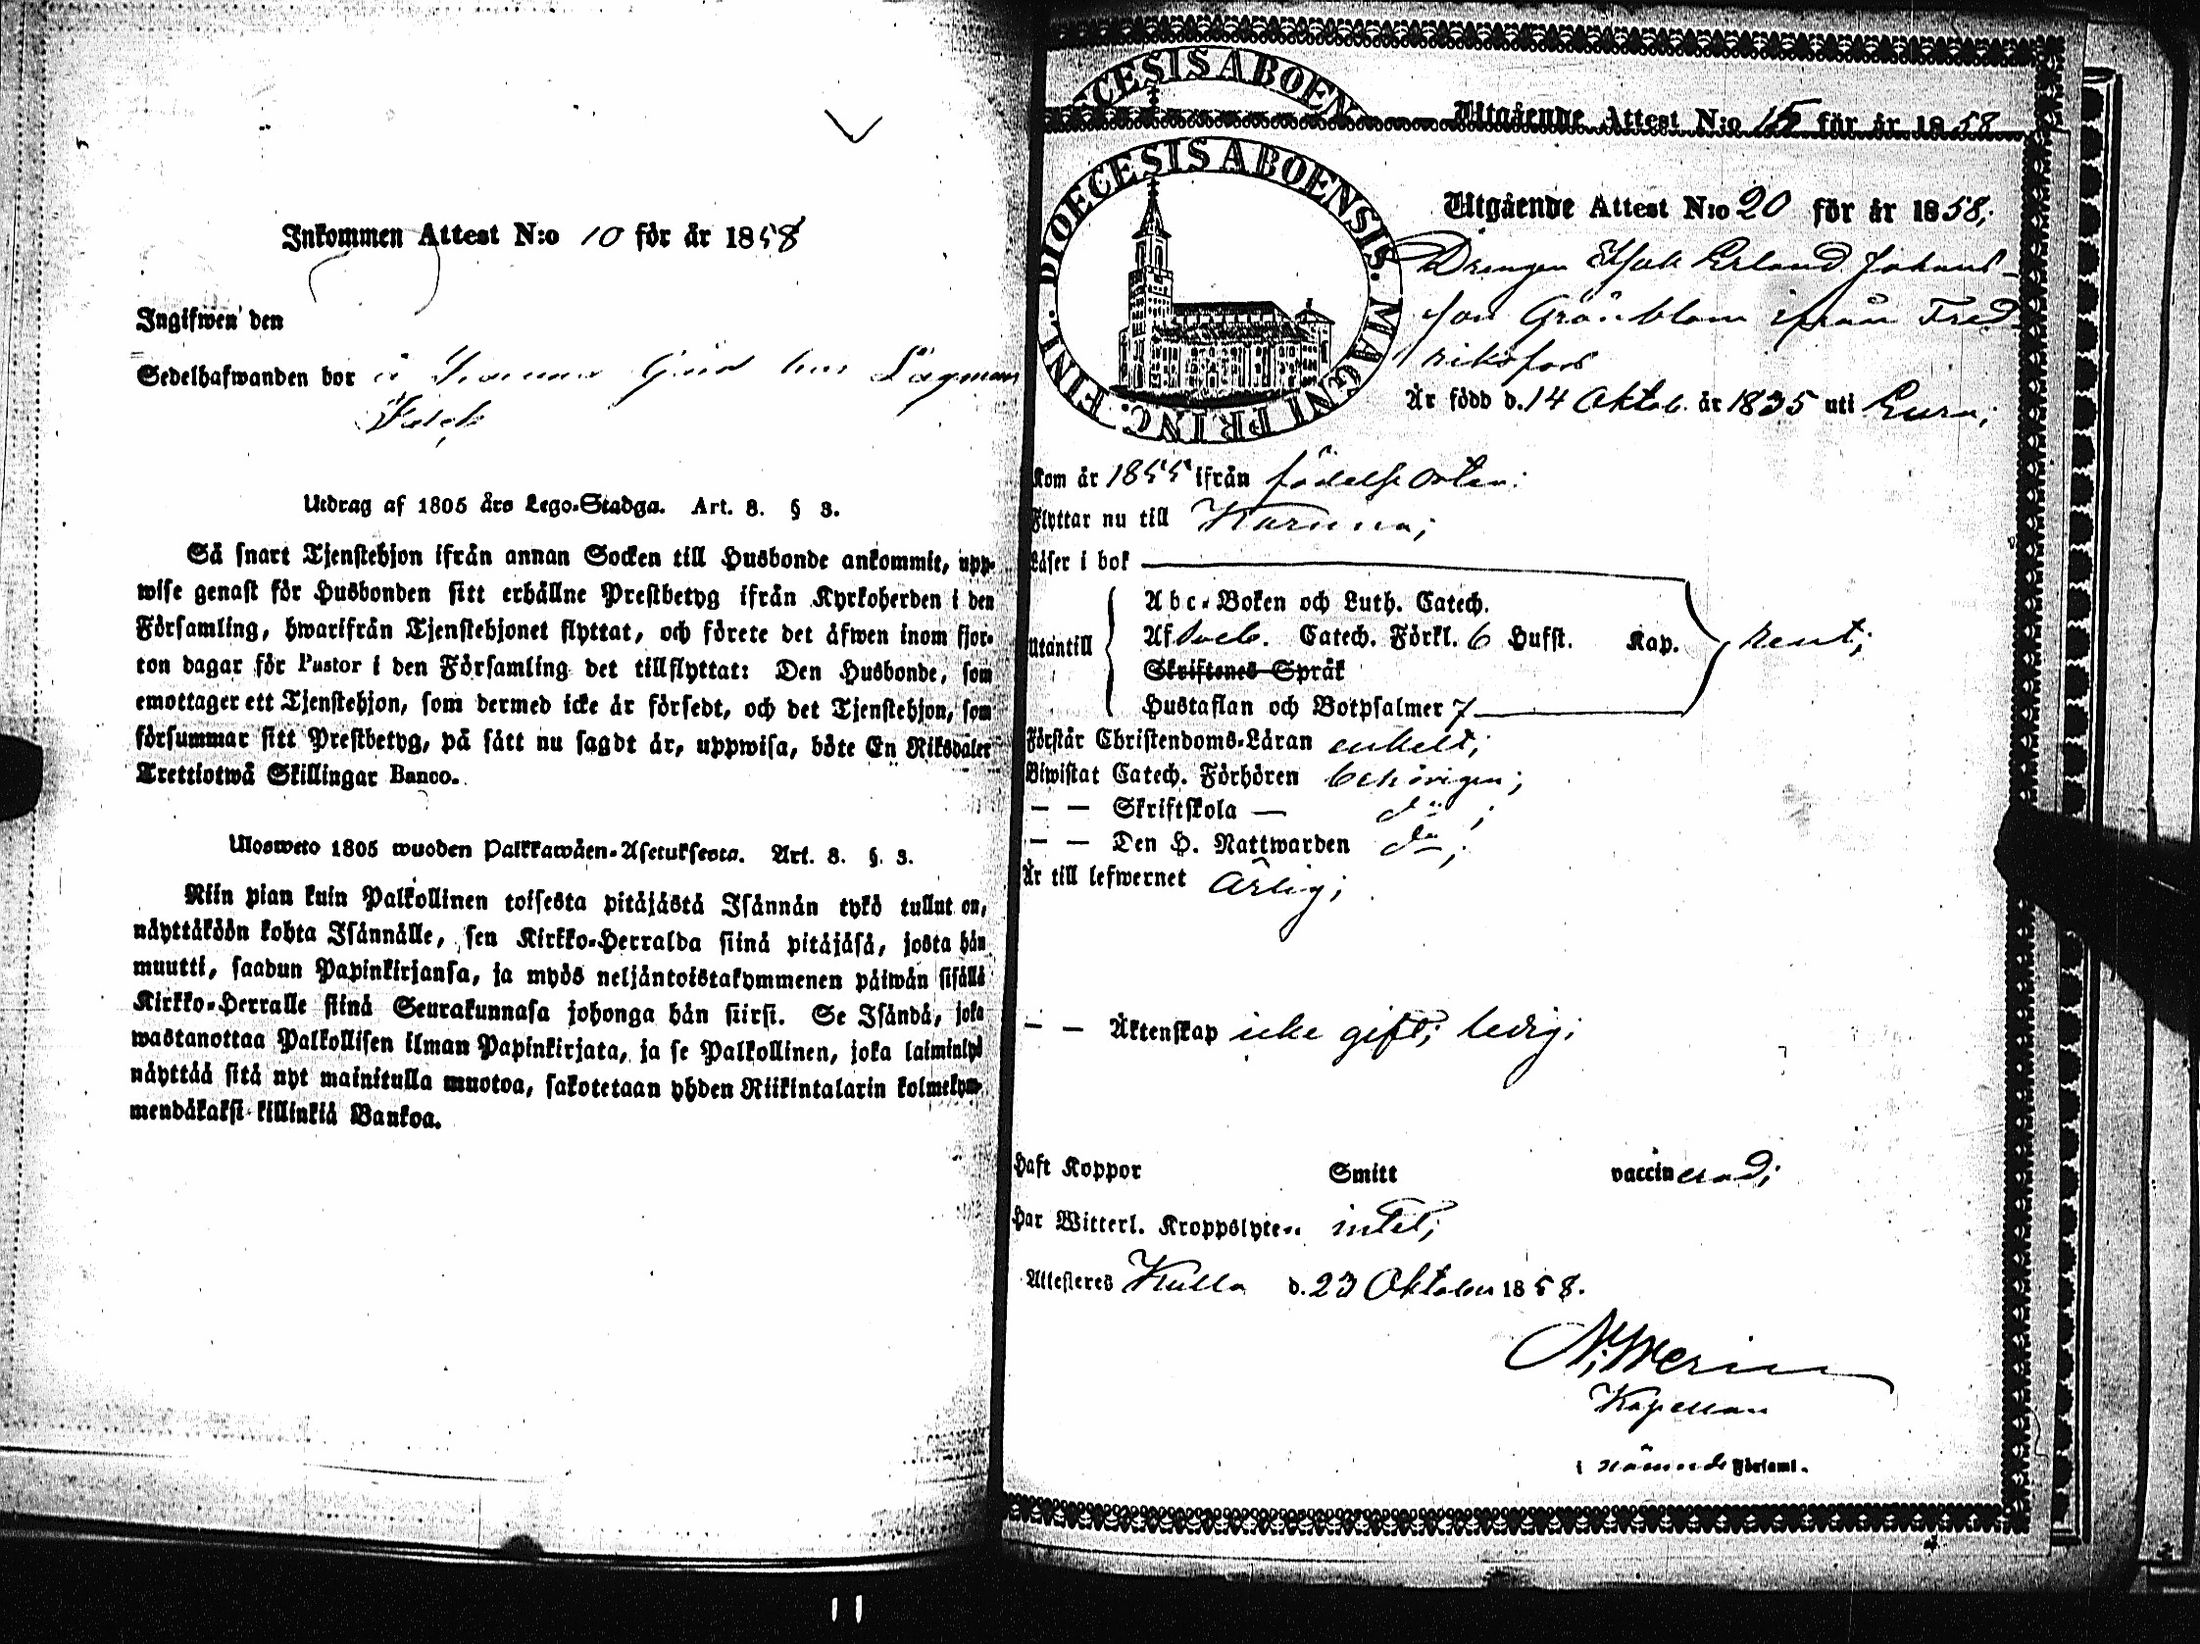 Inkommen Attest N:o 10 för år 1858
Ingifwen den
Sedelhafwanden bor i Gård hos Lagman
Falck
Utdrag af 1805 års Lego-Stadga. Art. 8. § 3.
Så snart Tjenstehjon ifrån annan Socken till Husbonde ankommit, upp-
wise genast för Husbonden sitt erhållne Prestbetyg ifrån Kyrkoherden i den
Församling, hwarifrån Tjenstehjonet flyttat, och förete det äfwen inom fjor-
ton dagar för Pastor i den Församling det tillflyttat: Den Husbonde, som
emottager ett Tjenstehjon, som dermed icke är försedt, och det Tjenstehjon, som
försummar sitt Prestbetyg, på sätt nu sagdt är, uppwisa, böte En Riksdaler
Trettiotwå Skillingar Banco.
Ulosweto 1805 wuoden Palkkawäen-Asetuksesta. Art. 8. §. 3.
Niin pian kuin Palkollinen toisesta pitäjästä Isännän tykö tullut on,
näyttäköön kohta Isännälle, sen Kirkko-Herralda siinä pitäjäsä, josta hän
muutti, saadun Papinkirjansa, ja myös neljäntoistakymmenen päiwän sisällä
Kirkko-Herralle siinä Seurakunnasa johonga hän siirsi. Se Isändä, joka
wastanottaa Palkollisen ilman Papinkirjata, ja se Palkollinen, joka laiminlyö
näyttää sitä nyt mainitulla muotoa, sakotetaan yhden Riikintalarin kolmekym-
mendäkaksi killinkiä Bankoa.
DIOECESIS ABOEN
Utgående Attest N:o 15 för år 1858
DIOECESIS ABOENSIS. MAGNI PRINC. FINL.
Utgående Attest N:o 20 för år 1858;
Drengen Isak Erland Johans-
son Grönblom ifrån Fred-
riksfors
Är född d. 14 Oktob. år 1835 uti Eura;
Kom år 1855 ifrån födelseorten;
Flyttar nu till Karuna;
Läser i bok
Utantill
Abc-Boken och Luth. Catech.
Af Sveb. Catech. Förkl. 6 Hufst. Kap. rent;
Skriftenes Språk
Hustaflan och Botpsalmer 7
Förstår Christendoms-Läran enkelt;
Biwistat Catech. Förhören behörigen;
— — Skriftskola — do;
— — Den H. Nattwarden do;
Är till lefwernet Ärlig;
— — Äktenskap icke gift; ledig;
Haft Koppor Smitt vaccinerad;
Har Witterl. Kroppslyten intet;
Attesteres Kulla d. 23 Oktober 1858.
Kapellan
i nämnde Församl.
11